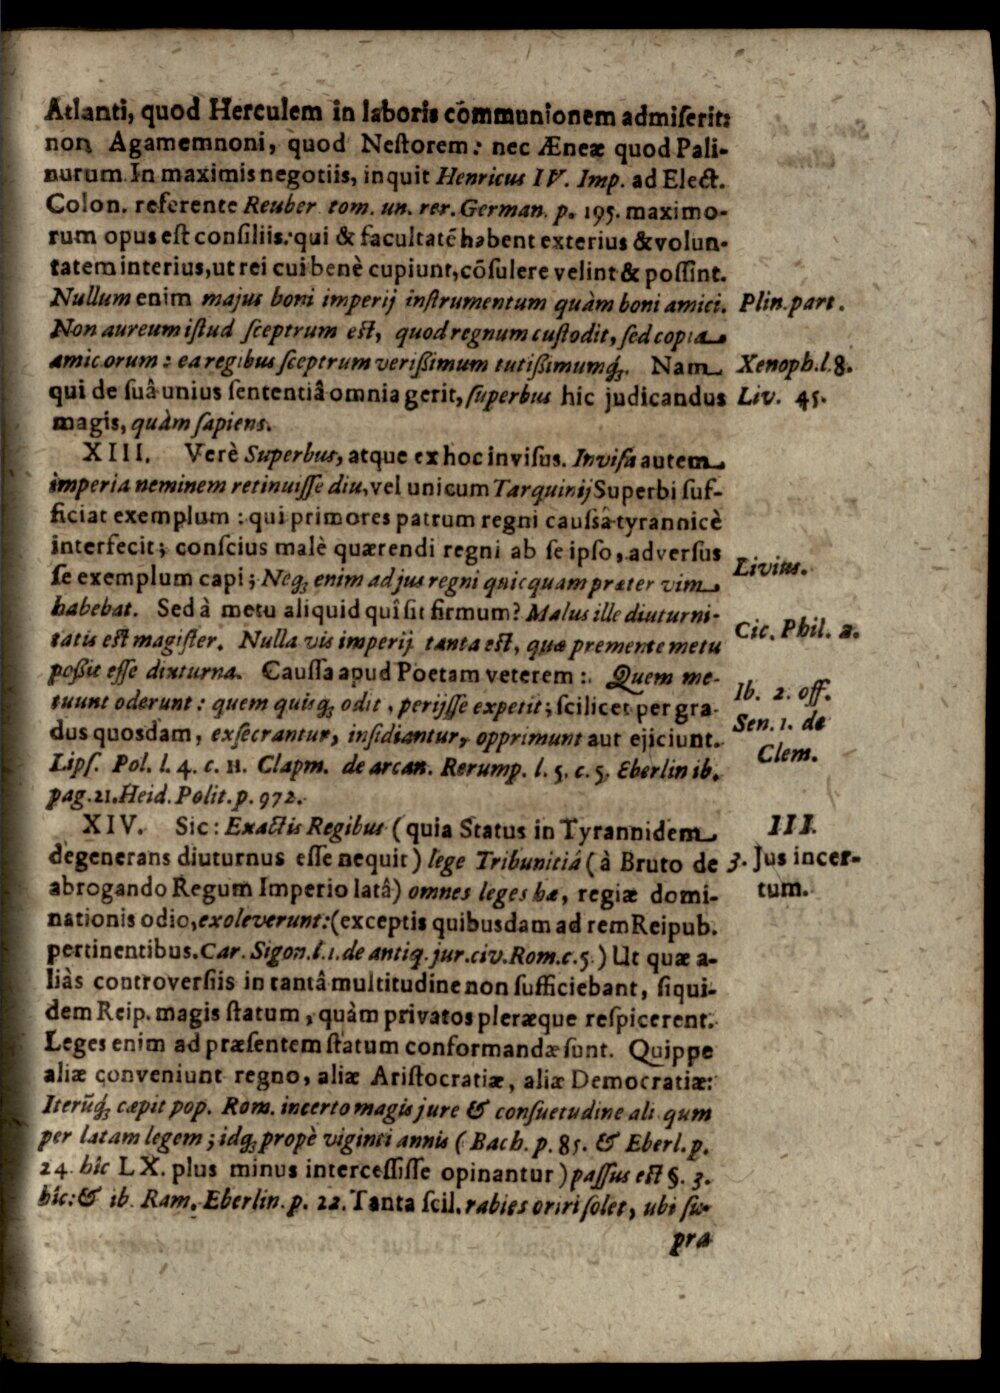 Atlanti, quod Herculem in laboris cōmmunionem admiserit:
non Agamemnoni, quod Nestorem: nec Æneæ quod Pali-
nurum In maximis negotiis, inquit Henricus IV. Imp. ad Elect.
Colon. referente Reuber tom. un. rer. German. p. 195. maximo-
rum opus est consiliis: qui & facultatē habent exterius & volun-
tatem interius, ut rei cui benè cupiunt, cōsulere velint & possint.
Nullum enim majus boni imperij instrumentum quàm boni amici. Plin. part.
Non aureum istud sceptrum est, quod regnum custodit, sed copia
amicorum: ea regibus sceptrum verißimum tutißimumq́;. Nam Xenoph. l. 8.
qui de suâ unius sententiâ omnia gerit, superbus hic judicandus Liv. 45.
magis, quàm sapiens.
XIII. Verè Superbus, atque ex hoc invisus. Invisa autem
imperia neminem retinuisse diu, vel unicum Tarquinij Superbi suf-
ficiat exemplum: qui primores patrum regni caussâ tyrannicè
interfecit; conscius malè quærendi regni ab se ipso, adversus
se exemplum capi; Neq; enim ad jus regni quicquam præter vim Livius.
habebat. Sed à metu aliquid quî sit firmum? Malus ille diuturni-
tatis est magister. Nulla vis imperij tanta est, quæ premente metu Cic. Phil. 2.
poßit esse diuturna. Caussa apud Poetam veterem: Quem me-
tuunt oderunt: quem quisq; odit, perijsse expetit; scilicet per gra- Ib. 2. off.
dus quosdam, exsecrantur, insidiantur, opprimunt aut ejiciunt. Sen. 1. de
Lips. Pol. l. 4. c. 11. Clapm. de arcan. Rerump. l. 5. c. 5. Eberlin ib. Clem.
pag. 21. Heid. Polit. p. 972.
XIV. Sic: Exactis Regibus (quia Status in Tyrannidem III.
degenerans diuturnus esse nequit) lege Tribunitiâ (à Bruto de 3. Jus incer-
abrogando Regum Imperio latâ) omnes leges hæ, regiæ domi- tum.
nationis odio, exoleverunt: (exceptis quibusdam ad rem Reipub.
pertinentibus. Car. Sigon. l. 1. de antiq. jur. civ. Rom. c. 5.) Ut quæ a-
liàs controversiis in tantâ multitudine non sufficiebant, siqui-
dem Reip. magis statum, quàm privatos pleræque respicerent.
Leges enim ad præsentem statum conformandæ sunt. Quippe
aliæ conveniunt regno, aliæ Aristocratiæ, aliæ Democratiæ:
Iterūq́; cæpit pop. Rom. incerto magis jure & consuetudine ali qum
per latam legem; idq; propè viginti annis (Bach. p. 85. & Eberl. p.
24. hîc LX. plus minus intercessisse opinantur) passus est §. 3.
hîc: & ib. Ram. Eberlin. p. 22. Tanta scil. rabies oriri solet, ubi su-
pra